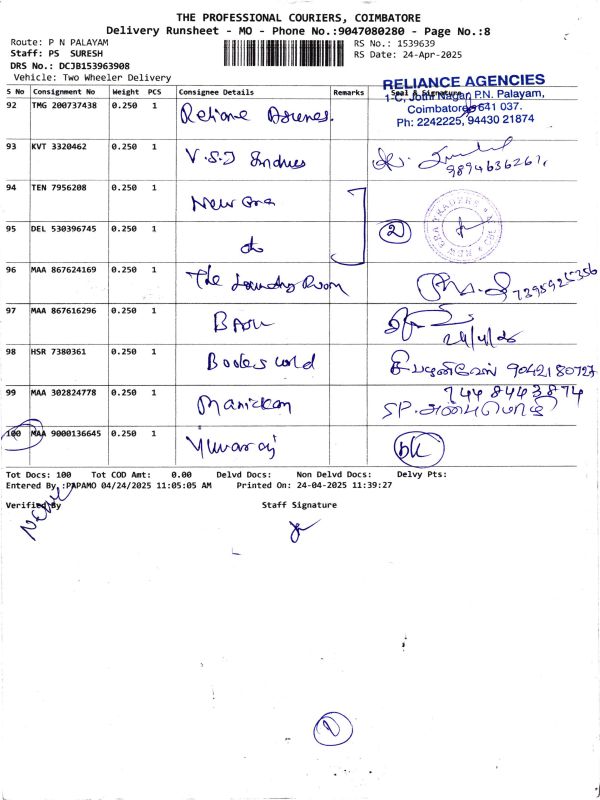 THE PROFESSIONAL COURIERS, COIMBATORE
Delivery Runsheet - MO - Phone No.:9047080280 - Page No.:8
Route: P N PALAYAM
Staff: PS SURESH
DRS No.: DCJB153963908
Vehicle: Two Wheeler Delivery
RS No.: 1539639
RS Date: 24-Apr-2025
RELIANCE AGENCIES
1-C, Jothi Nagar, P.N. Palayam,
Coimbatore 641 037.
Ph: 2242225, 94430 21874
S No Consignment No Weight PCS Consignee Details Remarks Seal & Signature
92 TMG 200737438 0.250 1
93 KVT 3320462 0.250 1 V.S.J
9894636261
94 TEN 7956208 0.250 1 New Era
95 DEL 530396745 0.250 1 do 2
96 MAA 867624169 0.250 1 The Laundry Room
7395925356
97 MAA 867616296 0.250 1
98 HSR 7380361 0.250 1 9042180727
99 MAA 302824778 0.250 1 Manickam
7448443874
SP.
100 MAA 9000136645 0.250 1 Yuvaraj
Tot Docs: 100 Tot COD Amt: 0.00 Delvd Docs: Non Delvd Docs: Delvy Pts:
Entered By :PAPAMO 04/24/2025 11:05:05 AM Printed On: 24-04-2025 11:39:27
Verified By Staff Signature